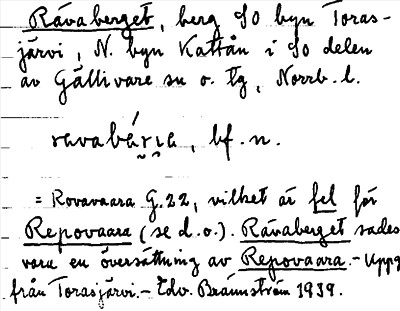 Rävaberget, berg SO byn Toras-
järvi, N. byn Kattån i SO delen
av Gällivare sn o. tg, Norrb. l.
ravabárı̯a, bf. n.
= Rovavaara G.22, vilket är fel för
Repovaara (se d.o.). Rävaberget sades
vara en översättning av Repovaara. - Uppg
från Torasjärvi. - Edv. Brännström 1939.